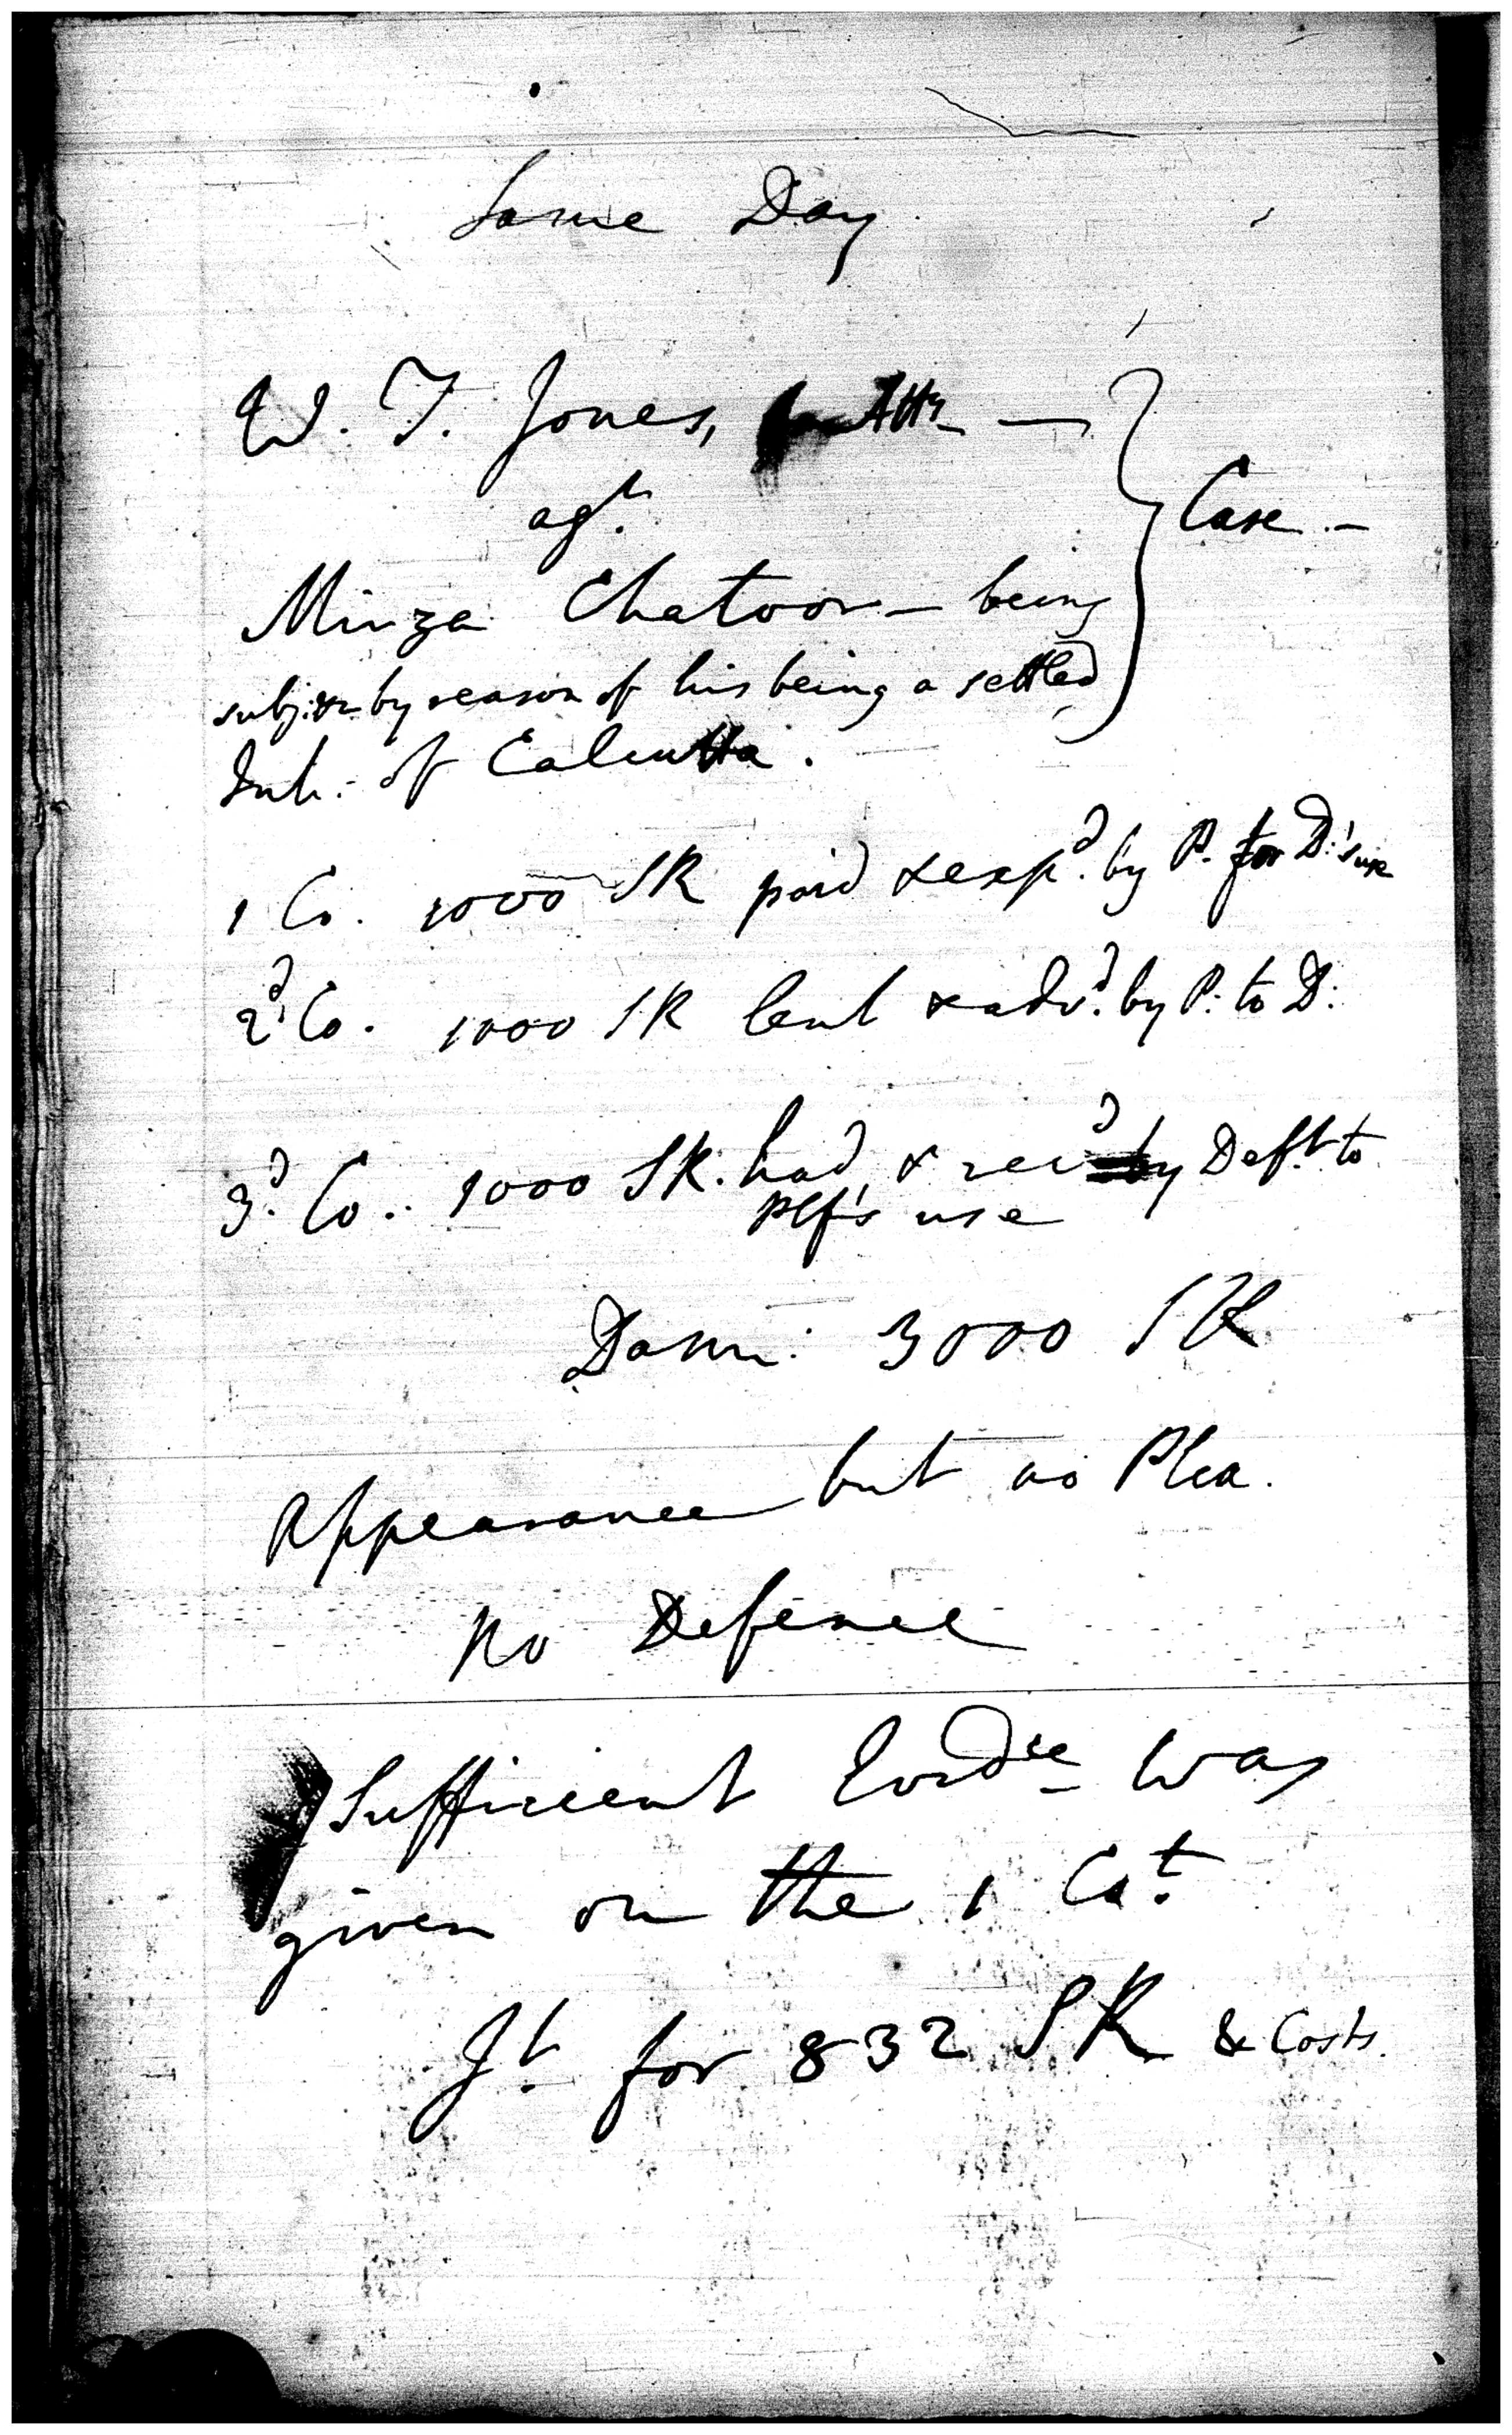 Same Day
W. T. Jones, Atty —
agt.
Case. —
Mirza Chatoor — being
subj: &c by reason of his being a settled
Inh: of Calcutta.
1 Co. 1000 SR paid & exp.d by P. for D:'s use
2.d Co. 1000 SR lent & adv.d by P: to D:
3.d Co.. 1000 SR. had & rec.d by Def.t to
Plf's use
Dam: 3000 SR
Appearance but no Plea.
No Defence
Sufficient Evidce was
given on the 1 Co.t
J.t for 832 SR & Costs.